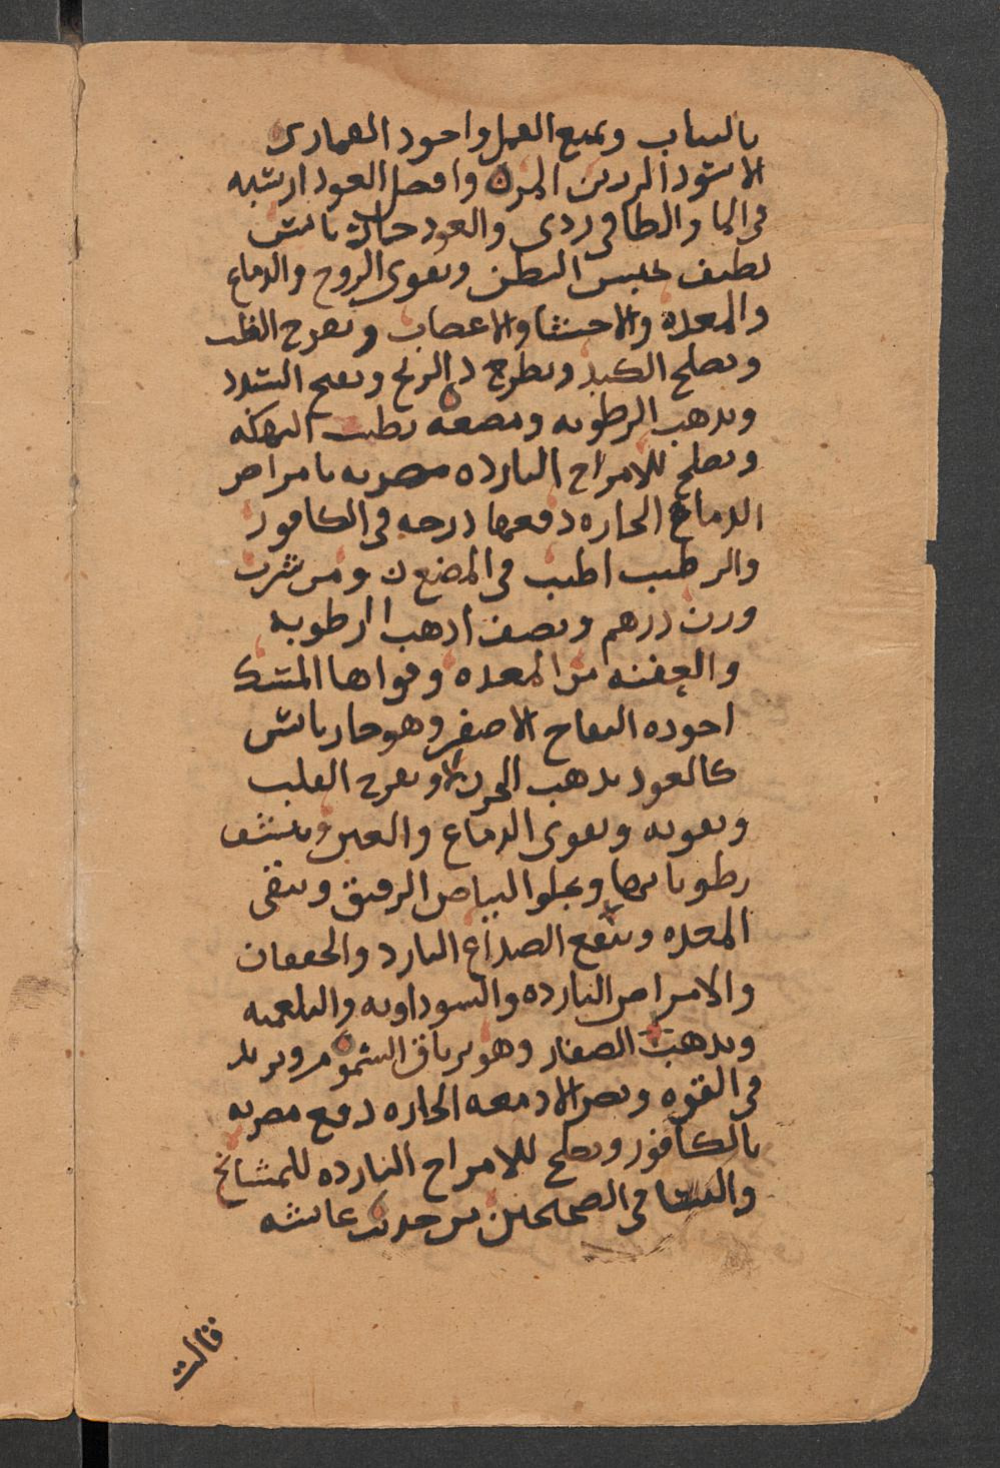 بالثياب ويمنع القمل واجود القماري
الاسود الرزين المرن وافضل العود ارسبه
في الما والطافي ردي والعود حار يابس
لطيف يحبس البطن ويقوي الروح والدماغ
والمعدة والاحشا والاعصاب ويفرح القلب
ويصلح الكبد ويطرح الريح ويفتح السدد
ويذهب الرطوبه ومضغه يطيب النكهه
ويصلح للامزاج البارده مضر به بامراض
الدماغ الحاره دفعها درجه في الكافور
والرطيب اطيب في المضغ ومن شرب
وزن درهم ونصف اذهب الرطوبه
والعفنه من المعده وقواها المسك
اجوده التفاح الاصفر وهو حار يابس
كالعود يذهب الحزن ويفرح القلب
ويقويه ويقوي الدماغ والعين وينشف
رطوباتها ويجلوا البياض الرقيق وينقي
المعده وينفع الصداع البارد والخفقان
والامراض البارده والسوداويه والبلغميه
ويذهب الصفار وهو ترياق السموم ويزيد
في القوه ويضر الادمغه الحاره دفع مضرته
بالكافور ويصلح للامزاج البارده للمشايخ
والشتا في الصحيحين من حديث عائشه
قالت